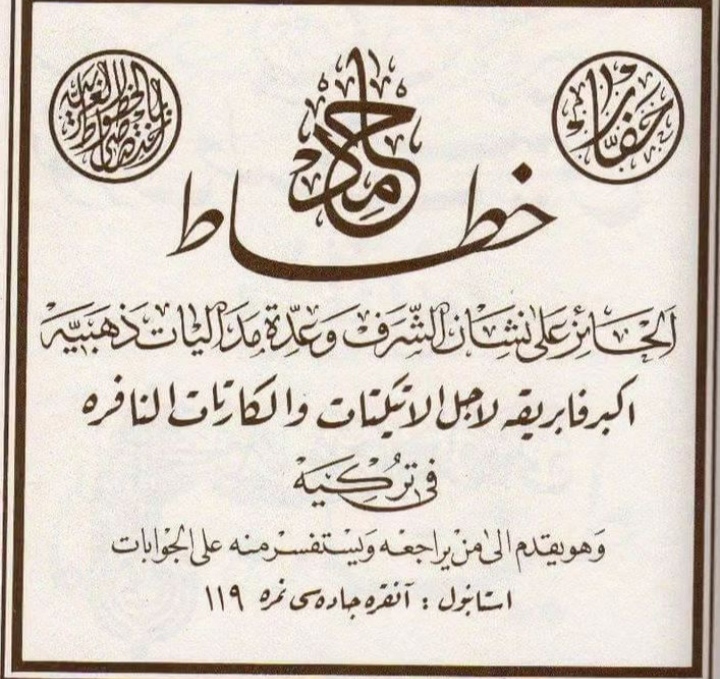 حفار
حامد
المختص بالخطوط العربية
خطاط
اَلحَائِز عَلىٰ نِشَانِ الشَّرَفْ وَعِدَّة مَدَاليَات ذَهَبيَّه
اكبر فابريقه لاجل الاتيكتات والكارتات النافره
فى تُركِيَه
وَهو يقدم الىٰ منْ يراجعه ويَستفسر منه على الجوابات
استانبول : آنقره جاده سى نمره ١١٩